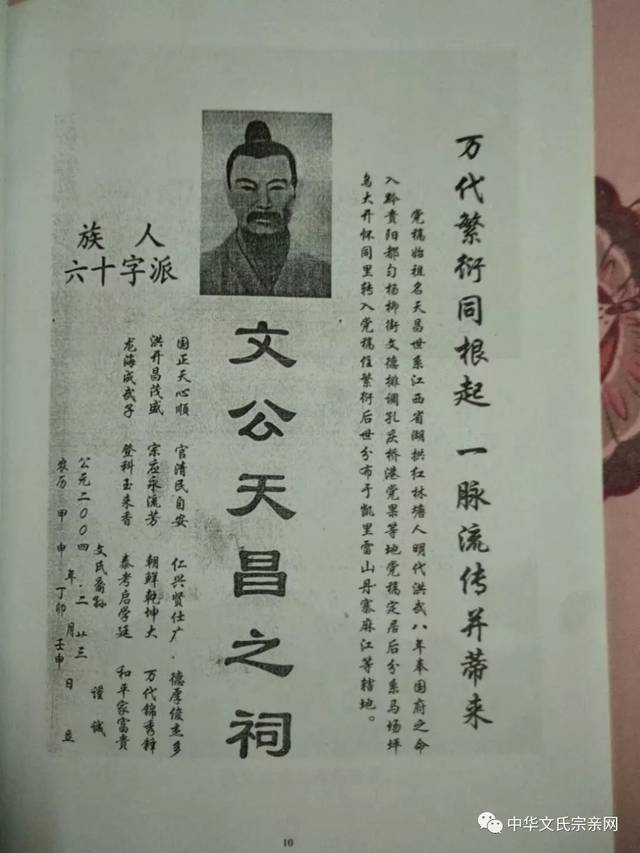 万代繁衍同根起 一脉流传并蒂来
党稿始祖名天昌世系江西省湖拱红林塘人明代洪武八年奉国府之命
入黔贵阳都匀杨柳街文德排调孔庆桥港党果等地党稿定居后分系马场坪
乌大开怀同里转入党稿住繁衍后世分布于凯里雷山丹寨麻江等辖地。
文公天昌之祠
族人
六十字派
国正天心顺 官清民自安 仁兴贤仕广.德厚俊杰多
洪开昌茂盛 宗应永流芳 朝鲜乾坤大 万代锦秀释
龙海成武子 登科玉来香 泰考启学廷 和平家富贵
文氏裔孙 谨诚
公元二00四年.二月廿三日 立
农历甲申 丁卯 壬申
10
中华文氏宗亲网